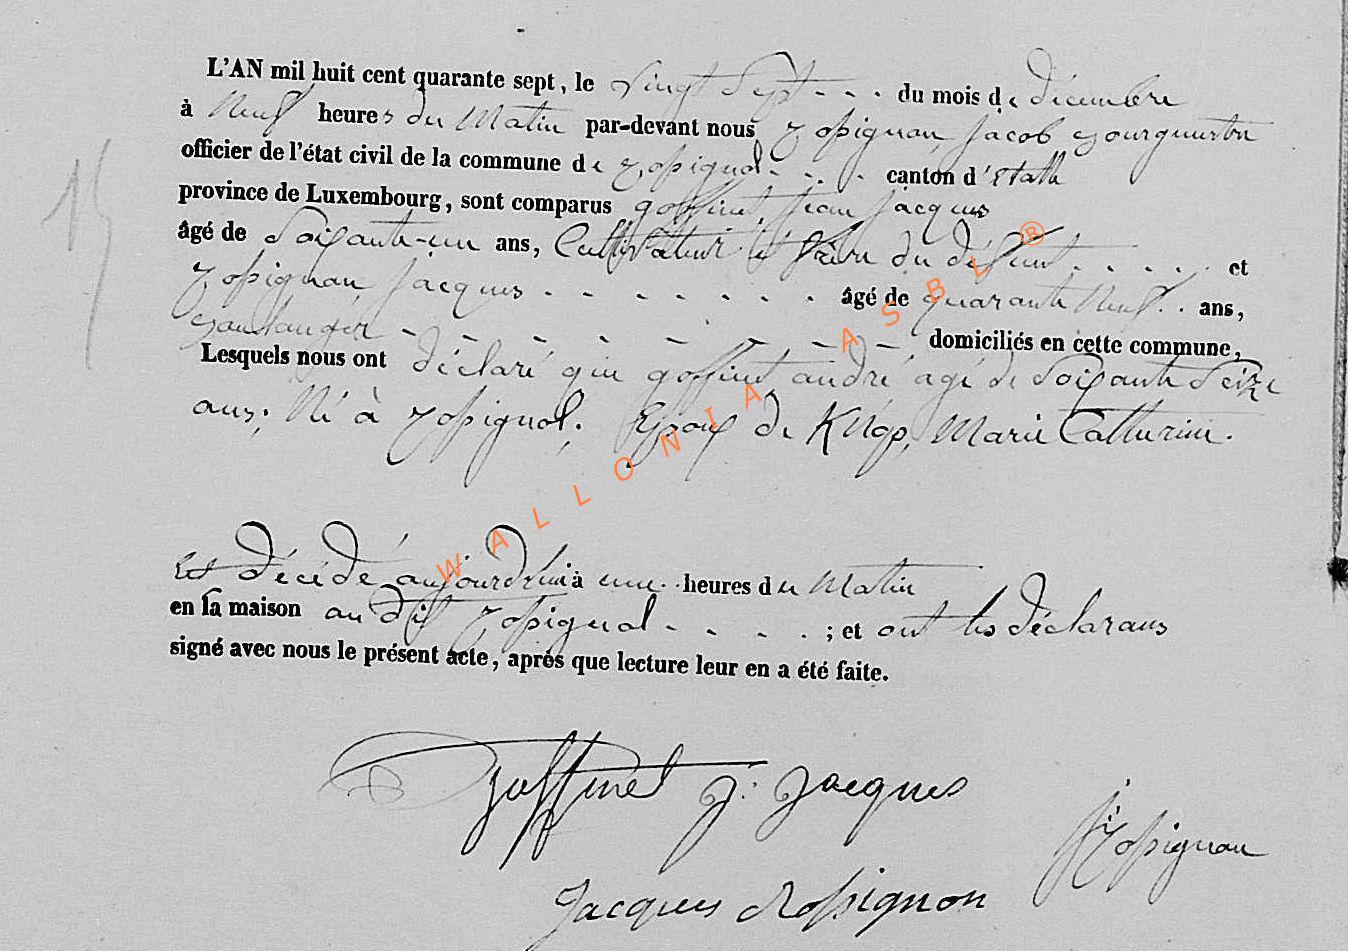 L'AN mil huit cent quarante sept, le Vingt Sept - - - du mois de décembre
à Neuf heures du Matin par-devant nous Rossignon, Jacob Bourguestre
officier de l'état civil de la commune de Rossignol - - - canton d'Etalle
province de Luxembourg, sont comparus goffinet, Jean Jacques
âgé de Soixante-un ans, Cultivateur et frère du défunt - - - - et
Rossignon, Jacques - - - - - - - âgé de quarante Neuf - - ans,
Boulanger - - - - - - - - domiciliés en cette commune,
Lesquels nous ont déclaré que goffinet, andré agé de Soixante Seize
ans, Né à Rossignol, Epoux de Marie Catherine.
Est décédé aujourdhui à une heures du Matin
en sa maison au dit Rossignol - - - - ; et ont les déclarans
signé avec nous le présent acte, après que lecture leur en a été faite.
goffinet J. Jacques
Rossignon
Jacques Rossignon
15
WALLONIA ASBL ®